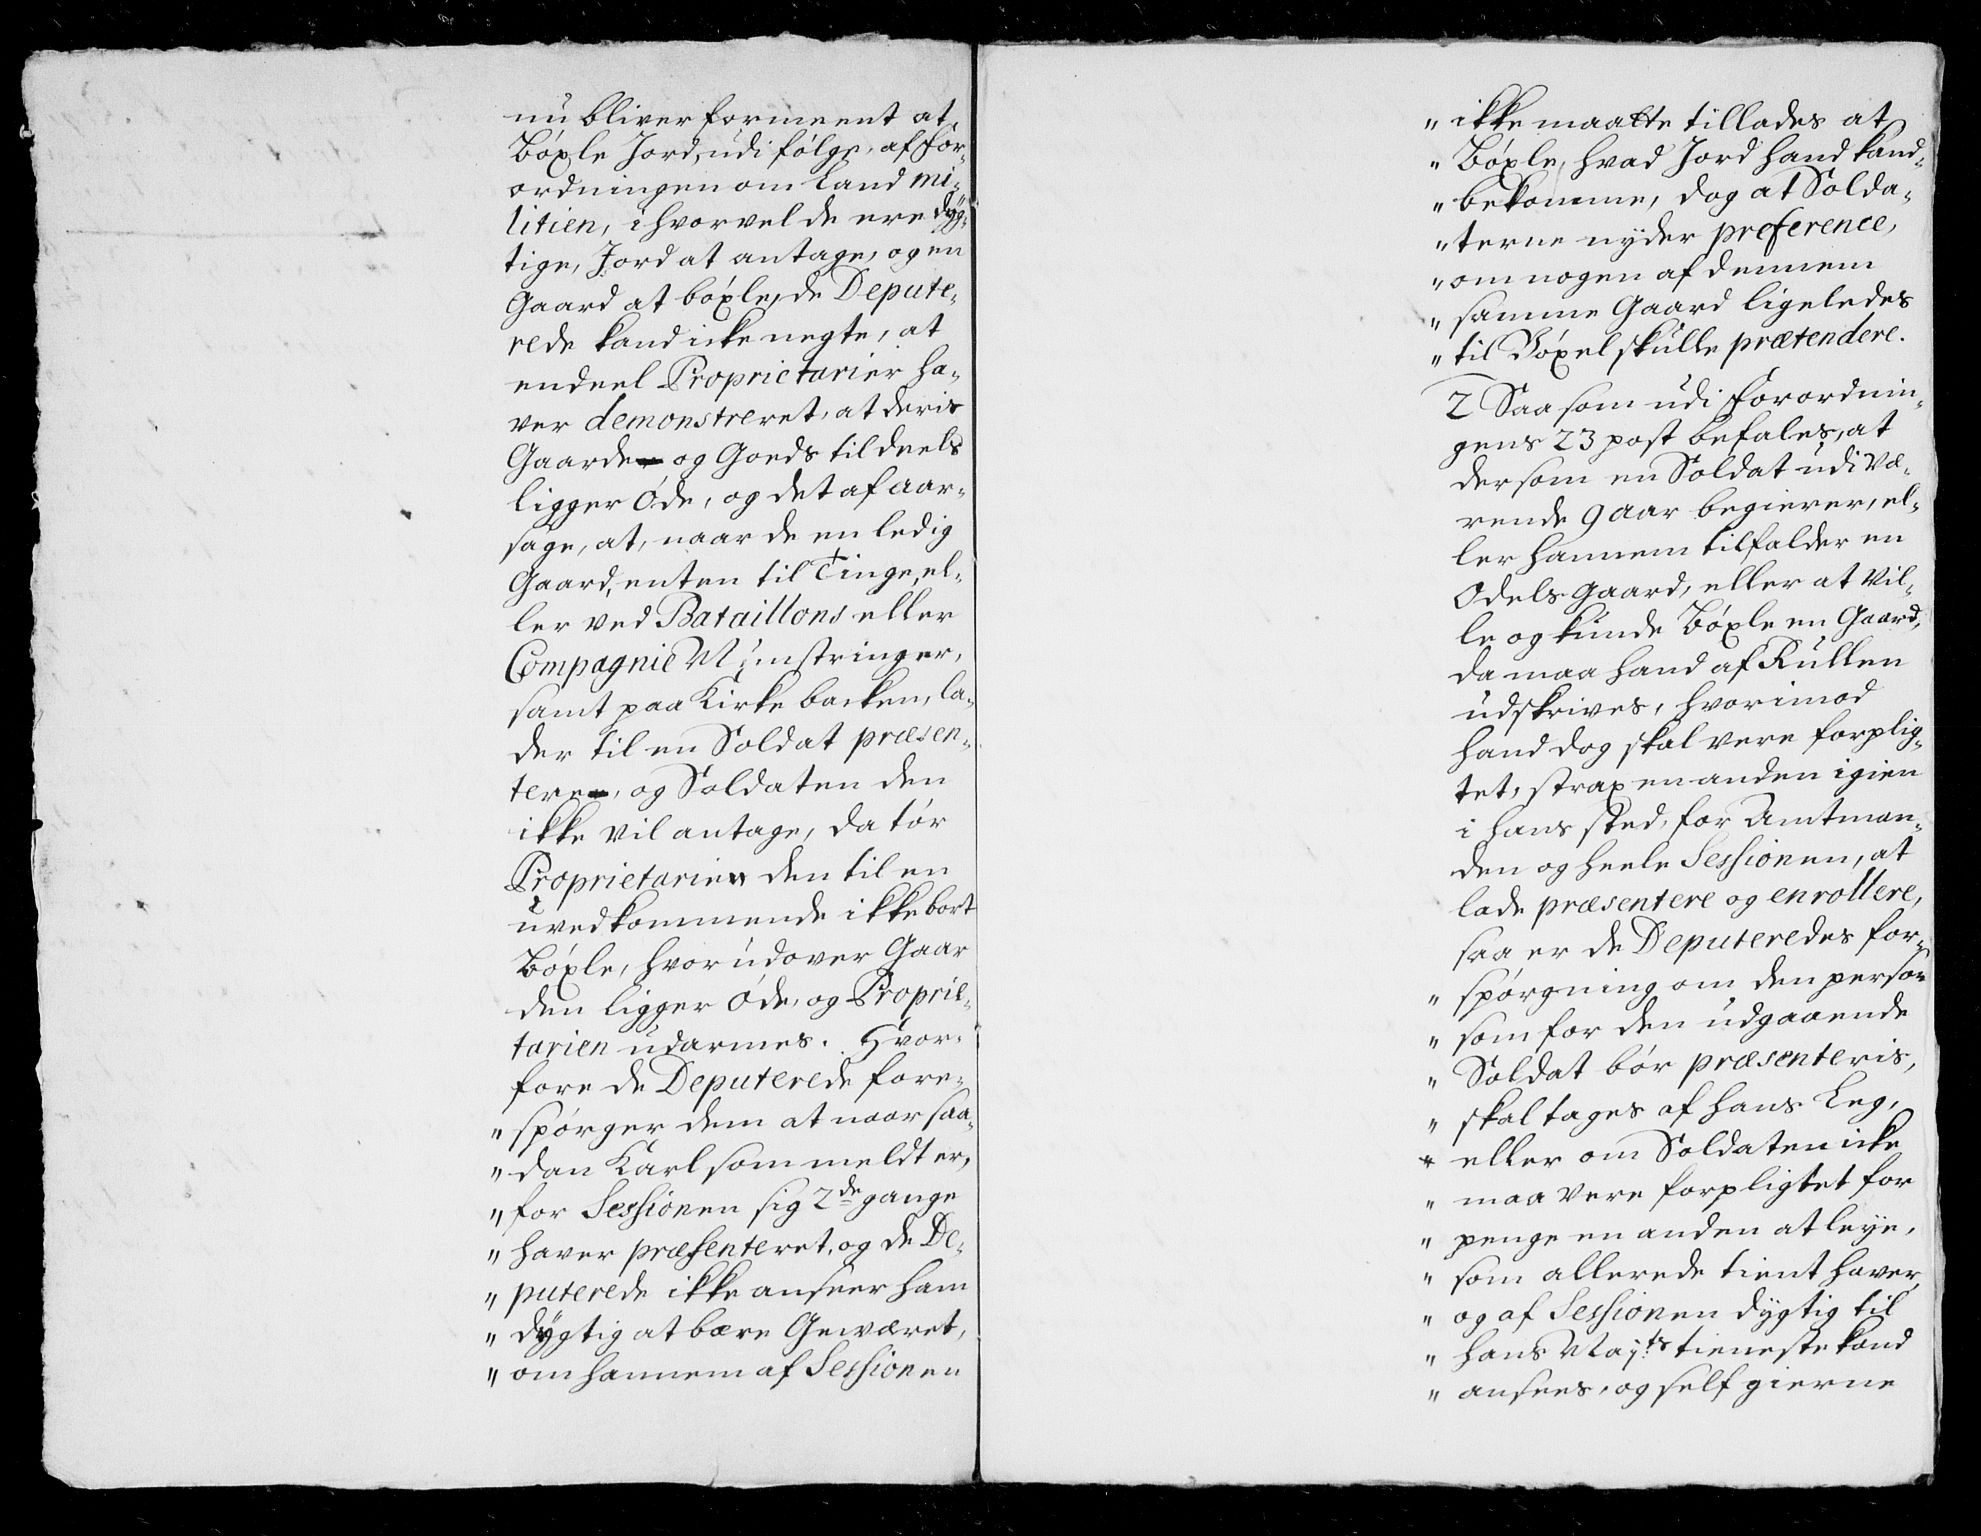 nu bliver formeent at
Bøxle Jord, udi følge, af for-
ordningen om Land mi-
litien, i hvorvel de ere dyg-
tige, Jord at antage, og en
Gaard at bøxle, de Depute-
rede kand icke negte, at
endeel Proprietarier ha-
ver demonstreret, at deris
Gaarde og Goeds til deels
ligger Øde, og det af aar-
sage, at, naar de en ledig
Gaard, enten til Tinge, el-
ler ved Bataillons eller
Compagnie Munstringer,
samt paa Kirke backen, la-
der til en Soldat præsen-
tere, og Soldaten den
ikke vil antage, da tør
Proprietarien den til en
uvedkommende ikke bort
Bøxle, hvorudover Gaar
den ligger Øde, og Proprie-
tarien udarmes. Hvor-
fore de Deputerede fore-
" spørger dem at naar saa-
" dan Karl som meldt er,
" for Sessionen sig 2de gange
" haver præsenteret, og de De-
" puterede ikke anseer ham
" dygtig at bære Geværet,
" om hannem af Sessionen
" ikke maatte tillades at
" Bøxle, hvad Jord hand kand
" bekomme, dog at Solda-
" terne nyder preference,
" om nogen af dennem
" samme Gaard ligeledes
" til Bøxel skulle prætendere.
2 Saa som udi Forordnin-
gens 23 post befales, at
dersom en Soldat udi væ-
rende 9 aar begierer, el-
ler hannem tilfalder en
Odels Gaard, eller at vil-
le og kunde Bøxle en Gaard,
da maa hand af Rullen
udskrives, hvorimod
hand dog skal vere forplig-
tet, strax en anden igien
i hans sted, for Amtman-
den og heele Sessionen, at
lade præsentere og enrollere,
saa er de Deputeredes for-
" spørgning om den person
" som for den udgaaende
" Soldat bør præsenteris,
" skal tages af hans Leg,
" eller om Soldaten icke
" maa vere forpligtet for
" penge en anden at leye,
" som allerede tient haver,
" og af Sessionen dygtig til
" hans Mayts tieneste kand
" ansees, og self gierne